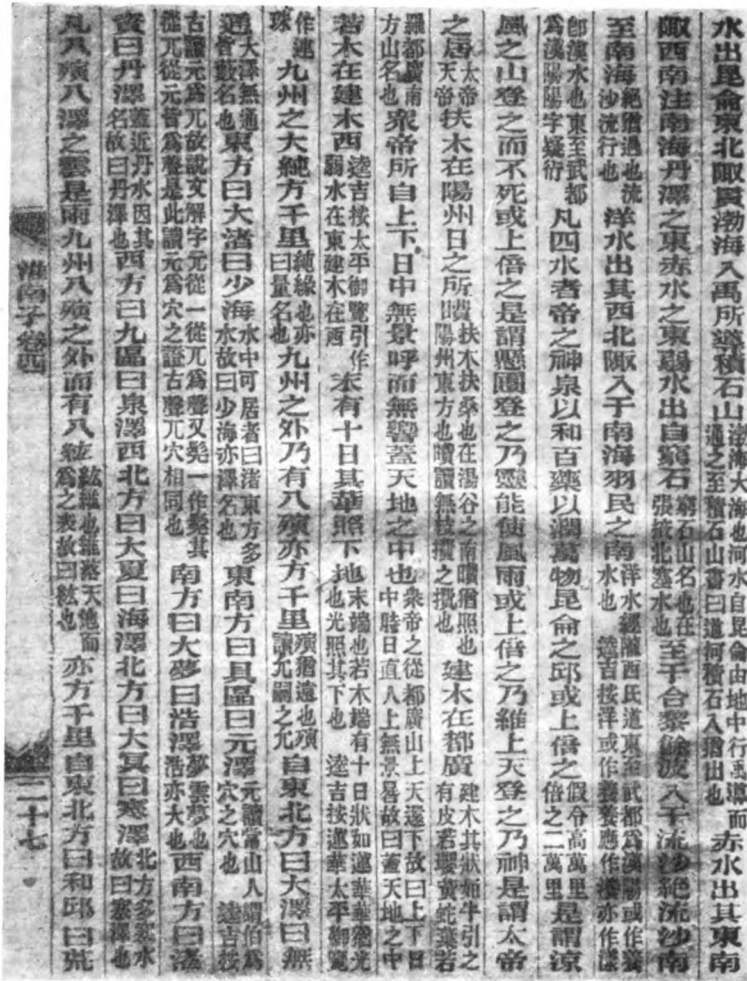 水出昆侖東北陬貫渤海入禹所導積石山渤海大海也河水自昆侖由地中行禹導而通之至積石山書曰道河積石入猶出也赤水出其東南
陬西南注南海丹澤之東赤水之東弱水出自窮石窮石山名也在張掖北塞水也至于合黎餘波入于流沙絕流沙南
至南海絕猶過也流沙流行也洋水出其西北陬入于南海羽民之南洋水經隴西氐道東至武都爲漢陽或作養水也 逵吉按洋或作養養應作瀁亦作漾
卽漢水也東至武都爲漢陽陽字疑衍凡四水者帝之神泉以和百藥以潤萬物昆侖之邱或上倍之假令高萬里倍之二萬里是謂涼
風之山登之而不死或上倍之是謂懸圃登之乃靈能使風雨或上倍之乃維上天登之乃神是謂太帝
之居太帝天帝扶木在陽州日之所曊扶木扶桑也在湯谷之南曊猶照也陽州東方也曊讀無枝攢之攢也建木在都廣建木其狀如牛引之有皮若瓔黃蛇葉若
羅都廣南方山名也衆帝所自上下日中無景呼而無響蓋天地之中也衆帝之從都廣山上天還下故曰上下日中時日直人上無景晷故曰蓋天地之中
若木在建木西逵吉按太平御覽引作弱水在東建木在西末有十日其華照下地末端也若木端有十日狀如蓮華華猶光也光照其下也 逵吉按蓮華太平御覽
作連珠九州之大純方千里純緣也亦曰量名也九州之外乃有八殥亦方千里殥猶遠也殥讀允嗣之允自東北方曰大澤曰無
通大澤無通皆藪名也東方曰大渚曰少海水中可居者曰渚東方多水故曰少海亦澤名也東南方曰具區曰元澤元讀常山人謂伯爲穴之穴也 逵吉按
古讀元爲兀故說文解字元從一從兀爲聲又髡一作髨其從兀從元皆爲聲是此讀元爲穴之證古聲兀穴相同也南方曰大夢曰浩澤夢雲夢也浩亦大也西南方曰渚
資曰丹澤蓋近丹水因其名故曰丹澤也西方曰九區曰泉澤西北方曰大夏曰海澤北方曰大冥曰寒澤北方多寒水故曰寒澤也
凡八殥八澤之雲是雨九州八殥之外而有八紘紘維也維落天地而爲之表故曰紘也亦方千里自東北方曰和邱曰荒
淮南子卷四
二十七